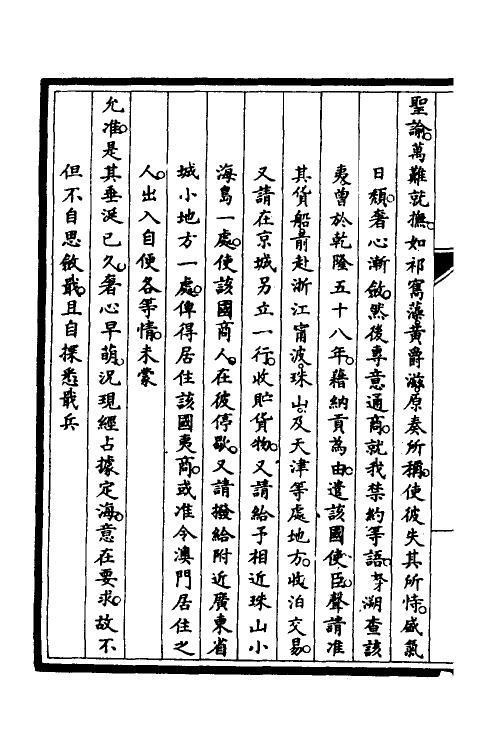 聖諭。萬難就撫。如祁寯藻黃爵滋原奏所稱。使彼失其所恃。盛氣
日頹。奢心漸斂。然後專意通商。就我禁約等語。芽溯查該
夷。曾於乾隆五十八年。藉納貢為由。遣該國使臣。聲請准
其貨船前赴浙江甯波珠山。及天津等處地方。收泊交易。
又請在京城另立一行。收貯貨物。又請給予相近珠山小
海島一處。使該國商人。在彼停歇。又請撥給附近廣東省
城小地方一處。俾得居住該國夷商。或准令澳門居住之
人。出入自便各等情。未蒙
允准。是其垂涎已久。奢心早萌。況現經占據定海。意在要求。故不
但不自思斂戢。且自揆悉戢兵